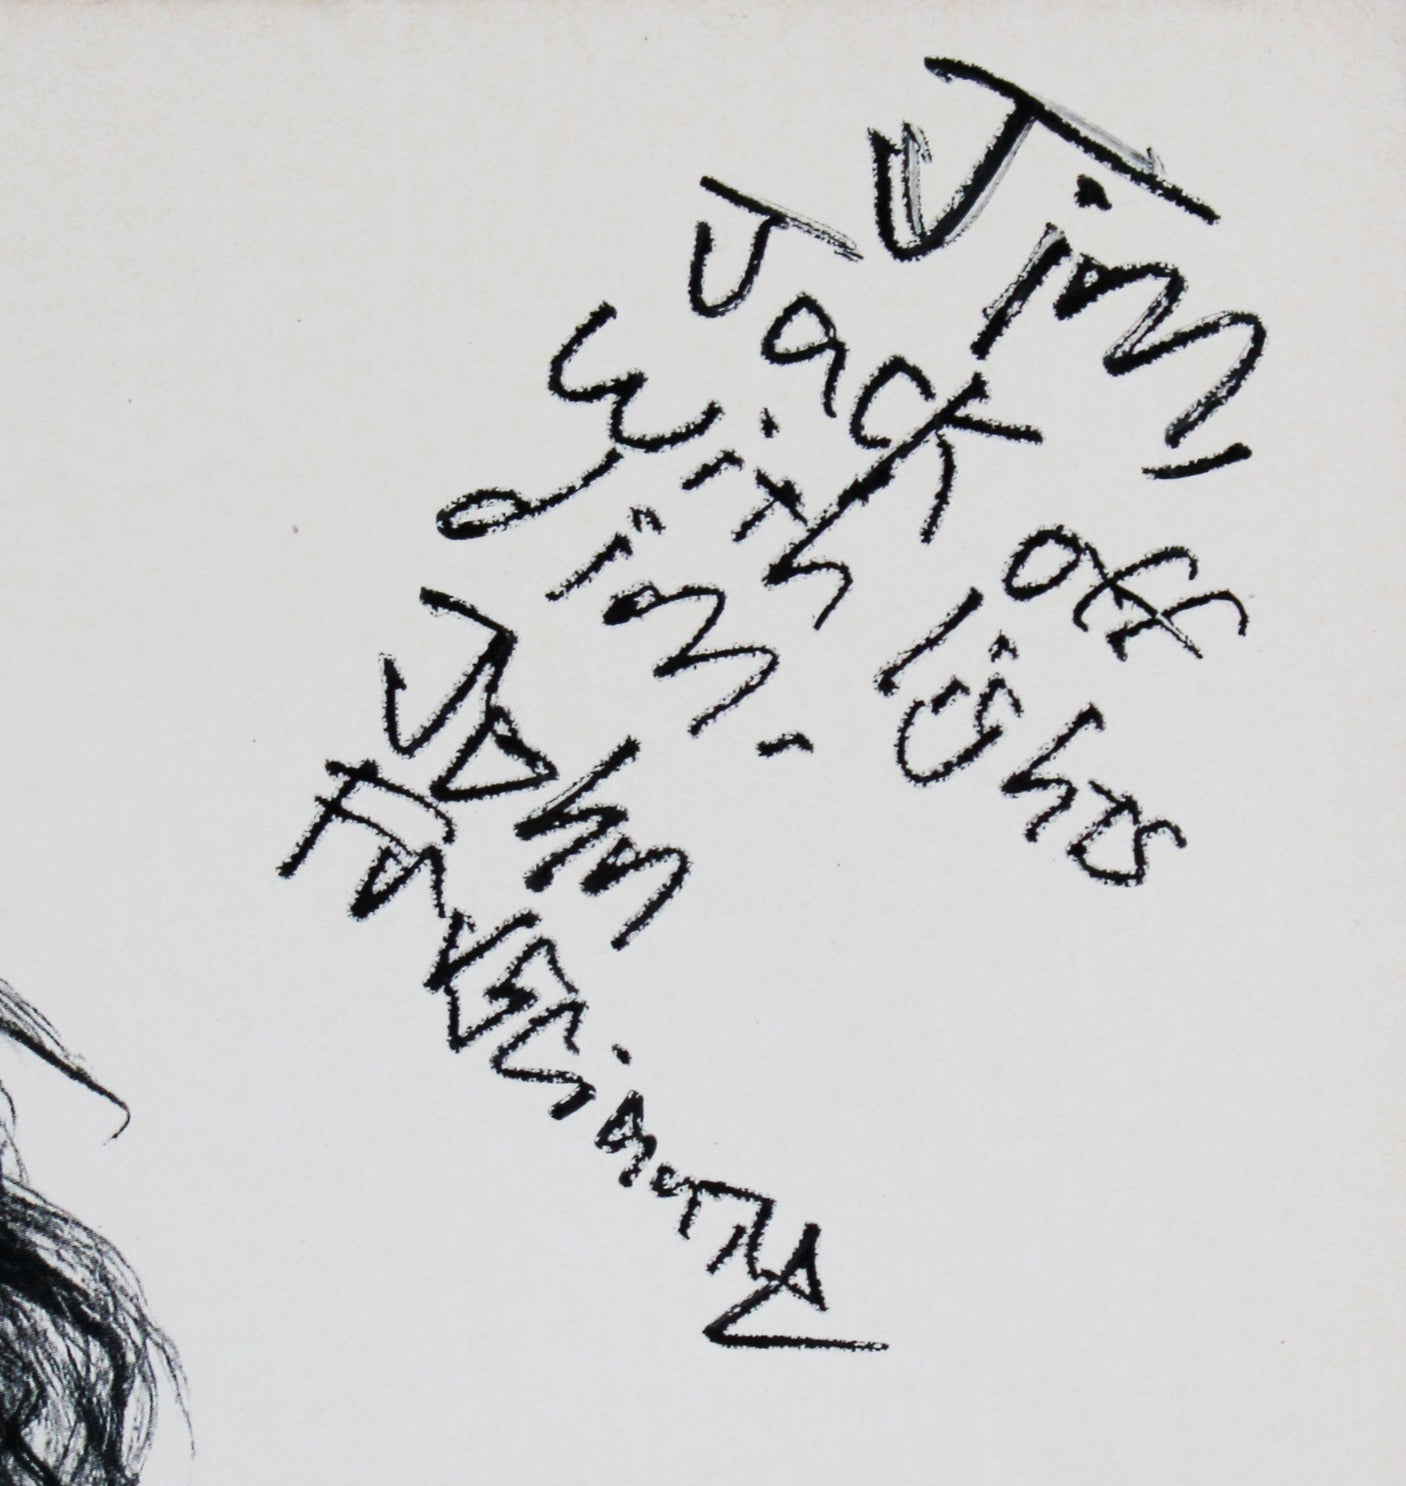 Jim,
Jack off
with lights
Jim.
John
Frusciante